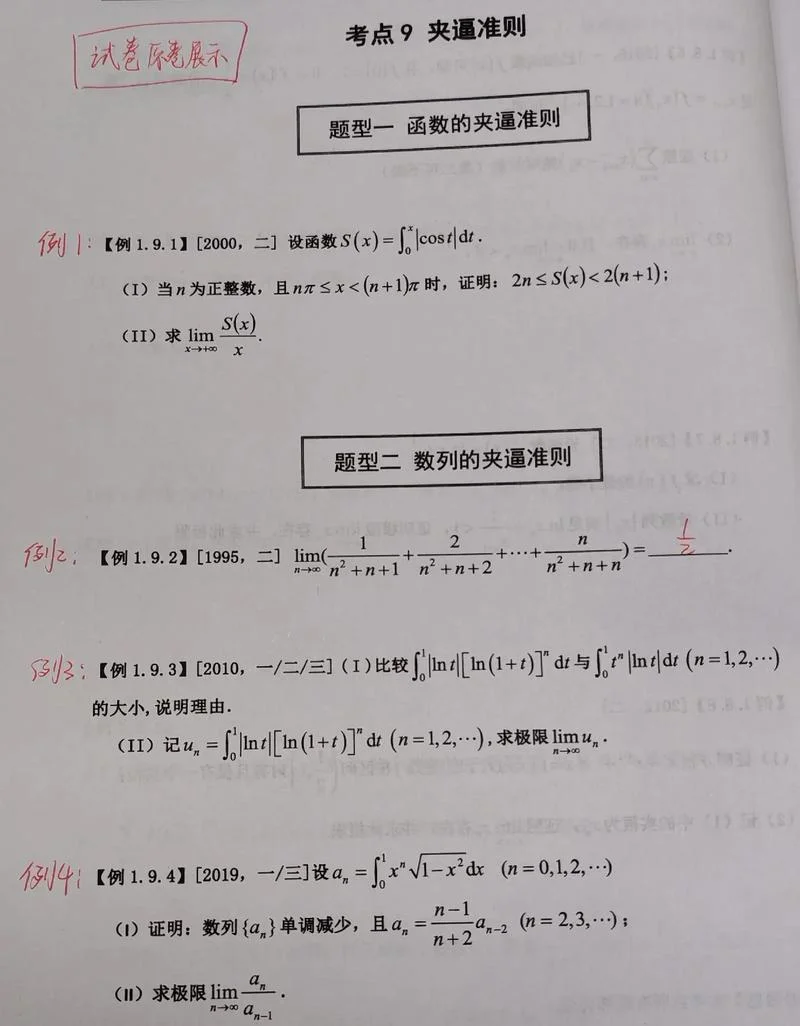 考点9 夹逼准则
试卷原卷展示
题型一 函数的夹逼准则
例1: 【例1.9.1】[2000, 二] 设函数 S(x)=∫₀ˣ|cos t|dt.
(I) 当n为正整数, 且 nπ≤x<(n+1)π 时, 证明: 2n≤S(x)<2(n+1);
(II) 求 lim_{x→+∞} S(x)/x.
题型二 数列的夹逼准则
例2: 【例1.9.2】[1995, 二] lim_{n→∞}(1/(n²+n+1)+2/(n²+n+2)+⋯+n/(n²+n+n))=1/2.
例3: 【例1.9.3】[2010, 一/二/三] (I) 比较 ∫₀¹|ln t|[ln(1+t)]ⁿ dt 与 ∫₀¹ tⁿ|ln t|dt (n=1,2,⋯)
的大小, 说明理由.
(II) 记 uₙ=∫₀¹|ln t|[ln(1+t)]ⁿ dt (n=1,2,⋯), 求极限 lim_{n→∞} uₙ.
例4: 【例1.9.4】[2019, 一/三] 设 aₙ=∫₀¹ xⁿ√(1−x²)dx (n=0,1,2,⋯)
(I) 证明: 数列{aₙ}单调减少, 且 aₙ=(n−1)/(n+2) aₙ₋₂ (n=2,3,⋯);
(II) 求极限 lim_{n→∞} aₙ/aₙ₋₁.